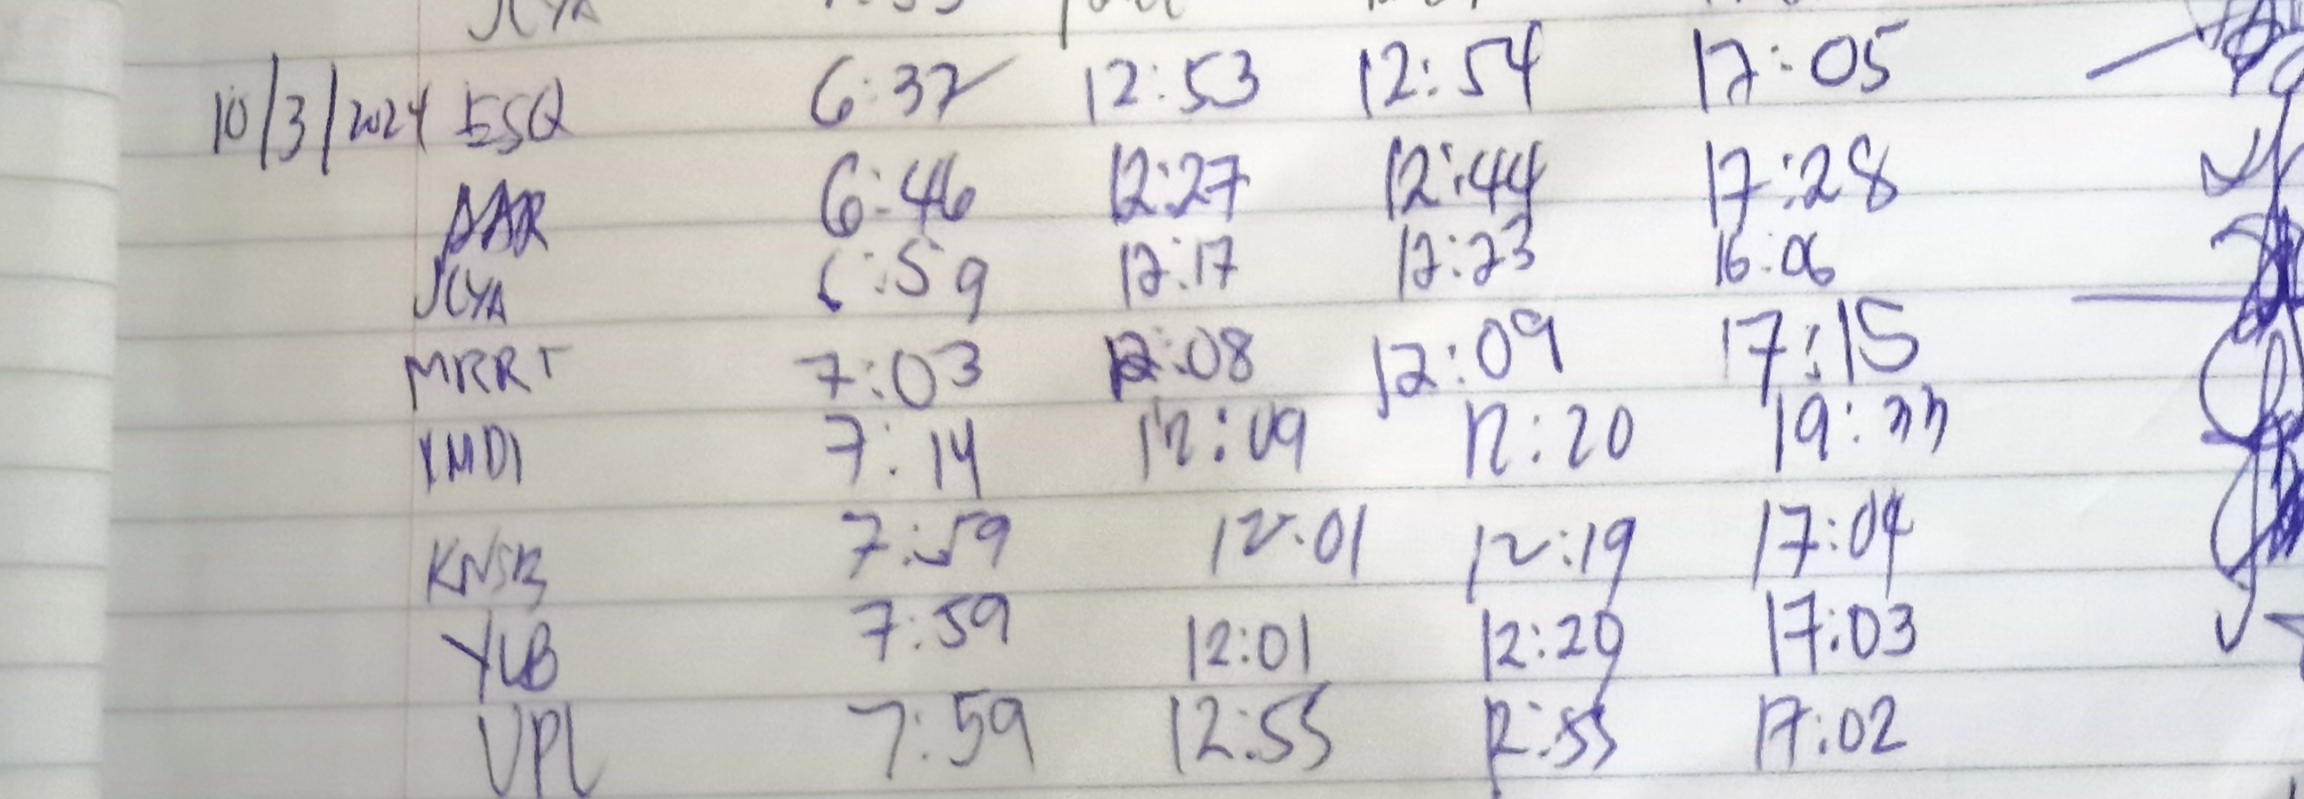 JCYA
10/3/2024 ESQ 6:37 12:53 12:54 17:05
AAR 6:46 12:27 12:44 17:28
JCYA 6:59 12:17 12:23 16:06
MRRT 7:03 12:08 12:09 17:15
YMDI 7:14 12:09 12:20 19:33
KNSB 7:59 12:01 12:19 17:04
YLB 7:59 12:01 12:20 17:03
VPL 7:59 12:55 12:55 17:02